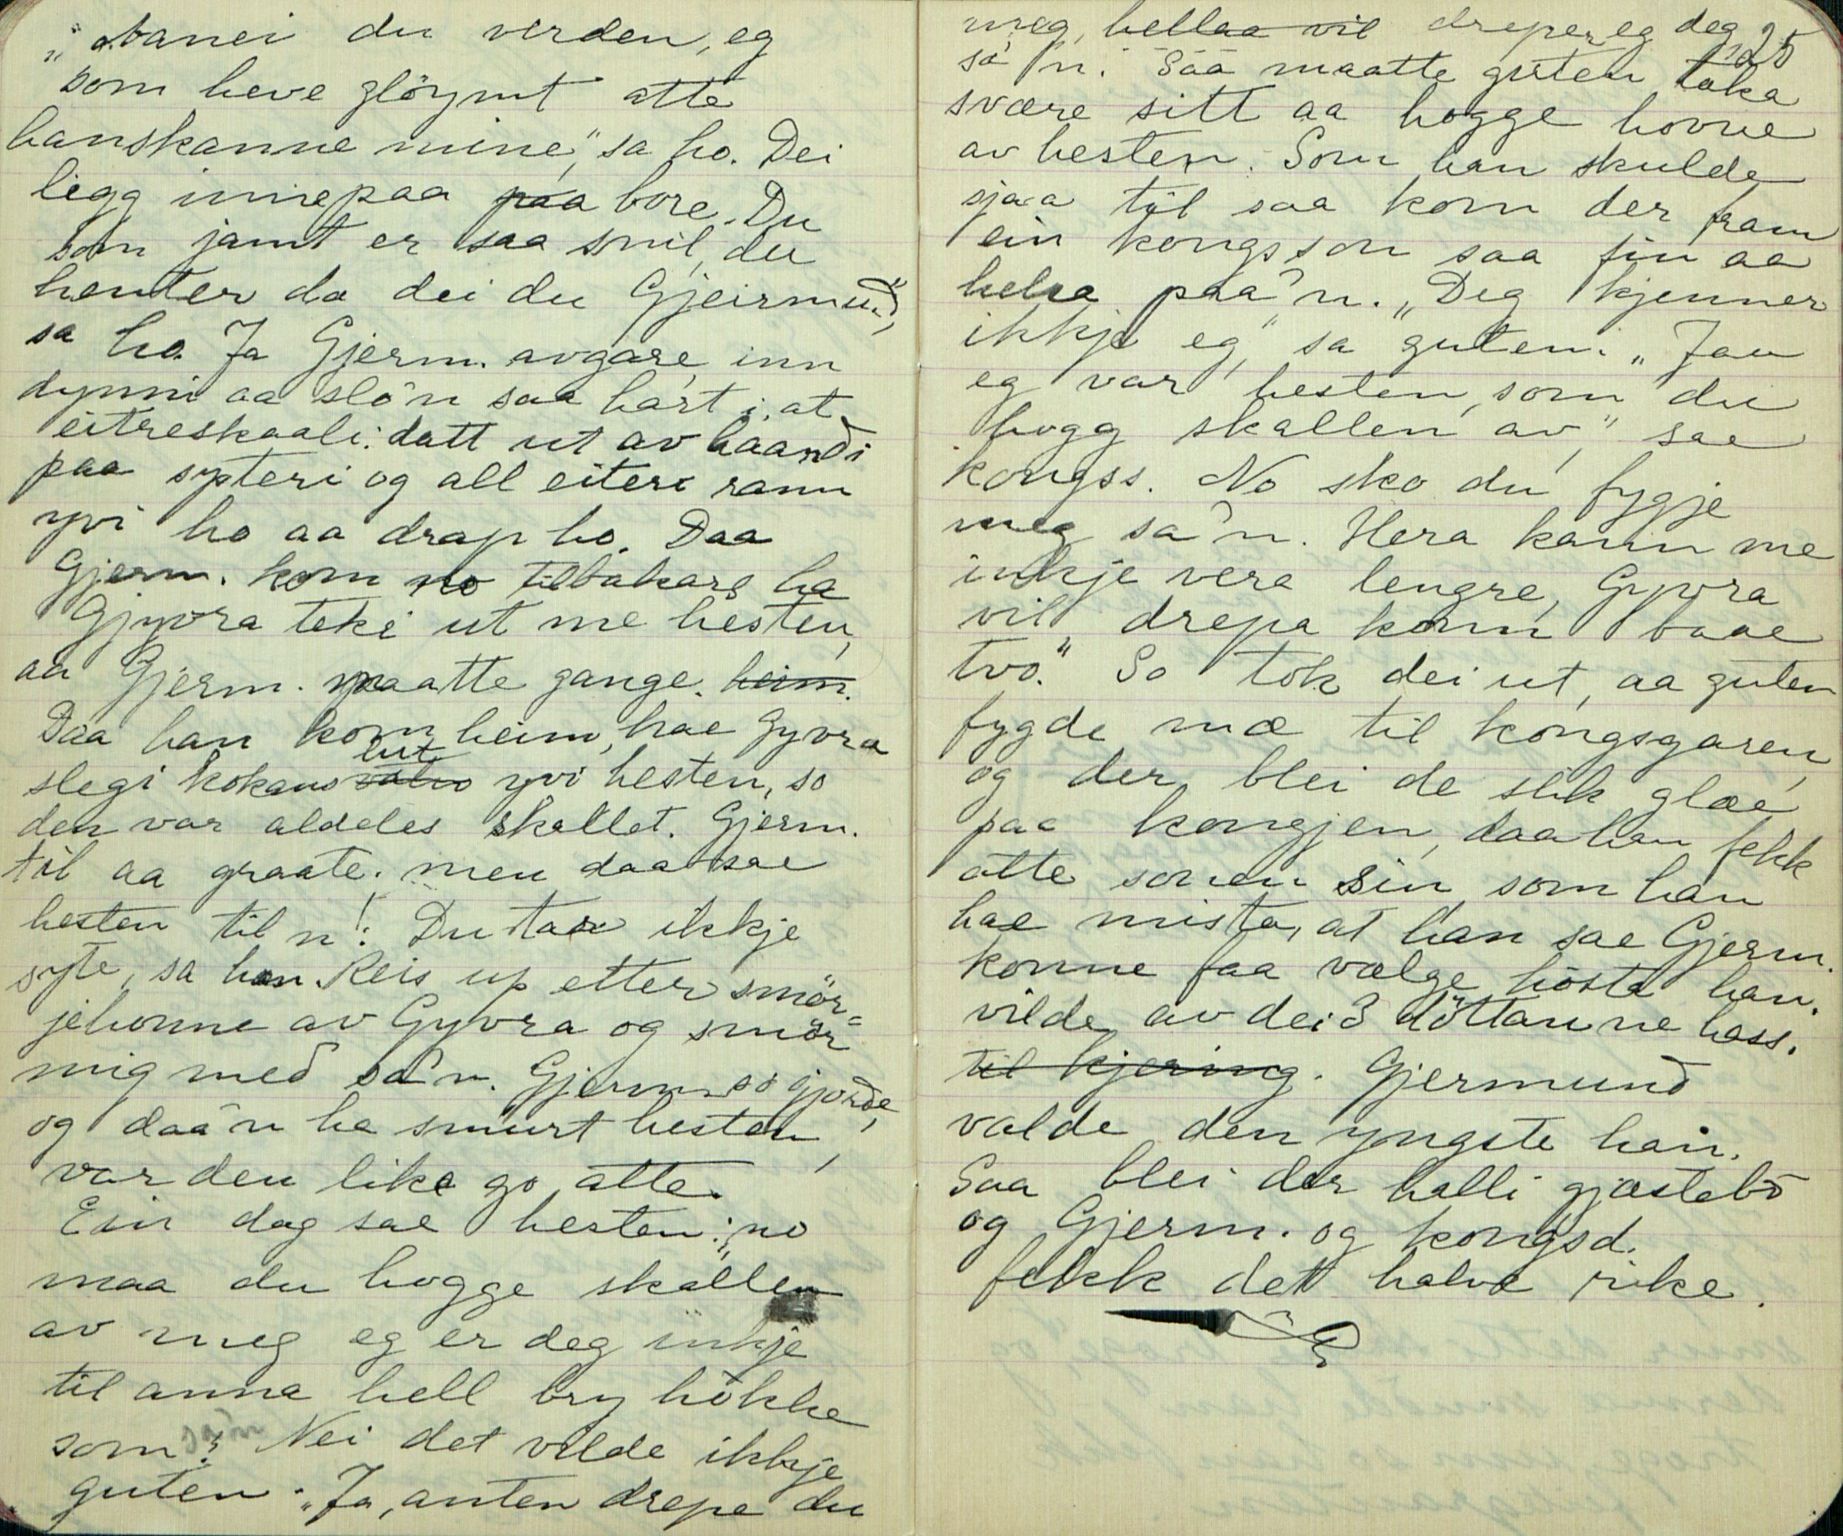 "Aanei du verden, eg
som heve glöymt atte
hanskanne mine," sa ho. Dei
ligg innepaa paa bore. Du
som jamt er saa snil, du
henter da dei du Gjeirmund,"
sa ho. Ja Gjerm. avgare, inn
dynni aa slo'n saa hart i, at
eitreskaali datt ut av haandi
paa systeri og all eitere rann
yvi ho aa drap ho. Daa
Gjerm. kom no tilbakars ha
Gjyvra teke ut me hesten,
aa Gjerm. maatte gange. heim.
Daa han kom heim, hae Gyvra
slegi kokans lut yvi hesten, so
den var aldeles skallet. Gjerm.
til aa graate. men daa sae
hesten til n': Du tar ikkje
syte, sa han. Reis up etter smör=
jehonne av Gyvra og smör
mig med sa'n. Gjerm. so gjorde,
og daa'n ha smurt hesten,
var den like go atte.
Ein dag sae hesten: "no
maa du hogge skallen
av meg eg er deg inkje
til anna hell bry hökke
som? Nei det vilde ikkje
guten. "Ja, anten drepe du
25
meg, hellaa vil dreper eg deg"
sa'n. Saa maatte guten taka
svære sitt aa hogge hovue
av hesten. Som han skulde
sjaa til saa kom der fram
ein kongsson saa fin aa
helsa paa'n. "Deg kjenner
ikkje eg," sa guten. "Jau
eg var hesten, som du
hogg skallen av," sae
kongss. No sko du fygje
meg sa'n. Hera kann me
inkje vera lengre, Gyvra
vil drepa konn baae
two." So tok dei ut, aa guten
fygde mæ til kongsgaren,
og der blei de slik glæe
paa kongjen, daa han fekk
atte sonen sin som han
hae mista, at han sae Gjerm.
konne faa vælge hosta han
vilde av dei 3 döttanne hass.
til kjering. Gjermund
valde den yngste han.
Saa blei der halli gjæstebö
og Gjerm. og kongsd.
fekk det halve rike.